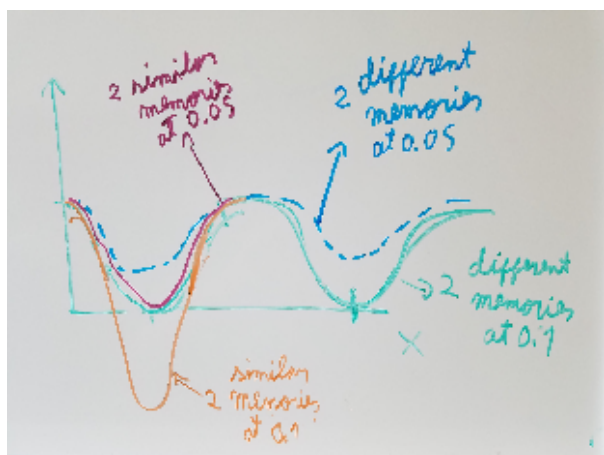 2 similar
memories
at 0.05
2 different
memories
at 0.05
2 different
memories
at 0.1
X
similar
2 memories
at 0.1